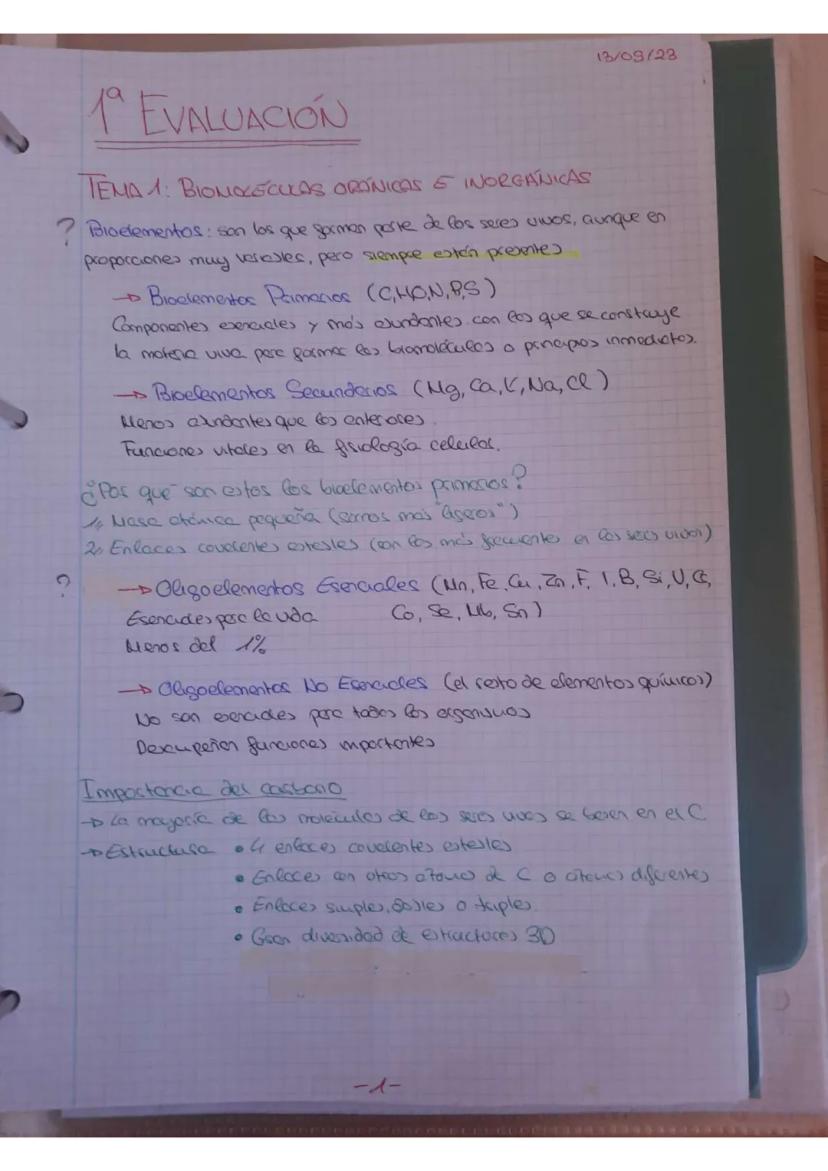 13/09/23
1ª EVALUACIÓN
TEMA 1: BIOMOLÉCULAS ORÁNICAS E INORGÁNICAS
? Bioelementos: son los que forman parte de los seres vivos, aunque en
proporciones muy variables, pero siempre están presentes
→ Bioelementos Primarios (C,H,O,N,P,S)
Componentes esenciales y más abundantes con los que se construye
la materia viva para formar las biomoléculas o principios inmediatos.
→ Bioelementos Secundarios (Mg, Ca, K, Na, Cl)
Menos abundantes que los anteriores.
Funciones vitales en la fisiología celular.
¿Por qué son estos los bioelementos primarios?
1, Masa atómica pequeña (somos más "ligeros")
2, Enlaces covalentes estables (con los más frecuentes en los seres vivos)
? → Oligoelementos Esenciales (Mn, Fe, Cu, Zn, F, I, B, Si, V, Cr,
Esenciales para la vida Co, Se, Mb, Sn)
Menos del 1%
→ Oligoelementos No Esenciales (el resto de elementos químicos)
No son esenciales para todos los organismos
Desempeñan funciones importantes
Importancia del carbono
→ La mayoría de las moléculas de los seres vivos se basan en el C
→ Estructura • 4 enlaces covalentes estables
• Enlaces con otros átomos de C o átomos diferentes
• Enlaces simples, dobles o triples.
• Gran diversidad de estructuras 3D
-1-